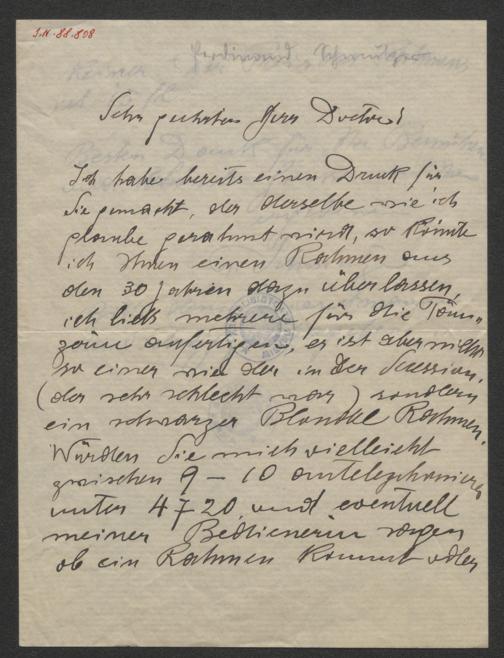 I.N. 88.808
Ferdinand Schmutzer
Sehr geehrter Herr Doctor!
Ich habe bereits einen Druck für
Sie gemacht, da derselbe wie ich
glaube gerahmt wird, so könnte
ich Ihnen einen Rahmen aus
den 30 Jahren dazu überlassen
ich ließ mehrere für die
anfertigen, es ist aber nicht
so einer wie der in der Secession.
(der sehr schlecht war) sondern
ein schwarzer Rahmen.
Würden Sie mich vielleicht
zwischen 9 – 10 antelephonieren
unter 4720 und eventuell
meiner Bedienerin sagen
ob ein Rahmen kommt oder